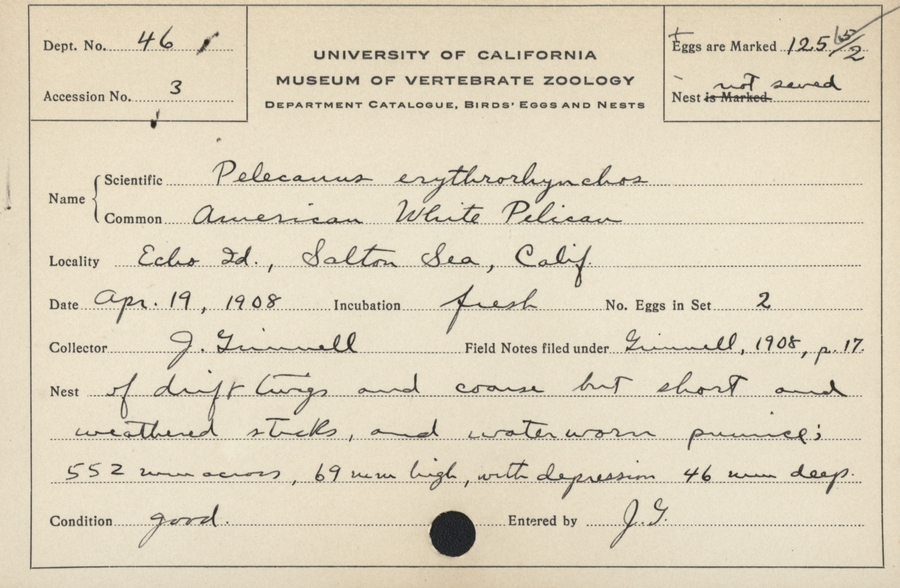 Dept. No. 46
Accession No. 3
UNIVERSITY OF CALIFORNIA
MUSEUM OF VERTEBRATE ZOOLOGY
DEPARTMENT CATALOGUE, BIRDS' EGGS AND NESTS
Eggs are Marked 125 2
not saved
Nest is Marked
Name
Scientific Pelecanus erythrorhynchos
Common American White Pelican
Locality Echo Id., Salton Sea, Calif.
Date Apr. 19, 1908 Incubation fresh No. Eggs in Set 2
Collector J. Grinnell Field Notes filed under Grinnell, 1908, p. 17.
Nest of drift twigs and coarse but short and
weathered sticks, and waterworn pumice;
552 mm across, 69 mm high, with depression 46 mm deep.
Condition good. Entered by J.G.